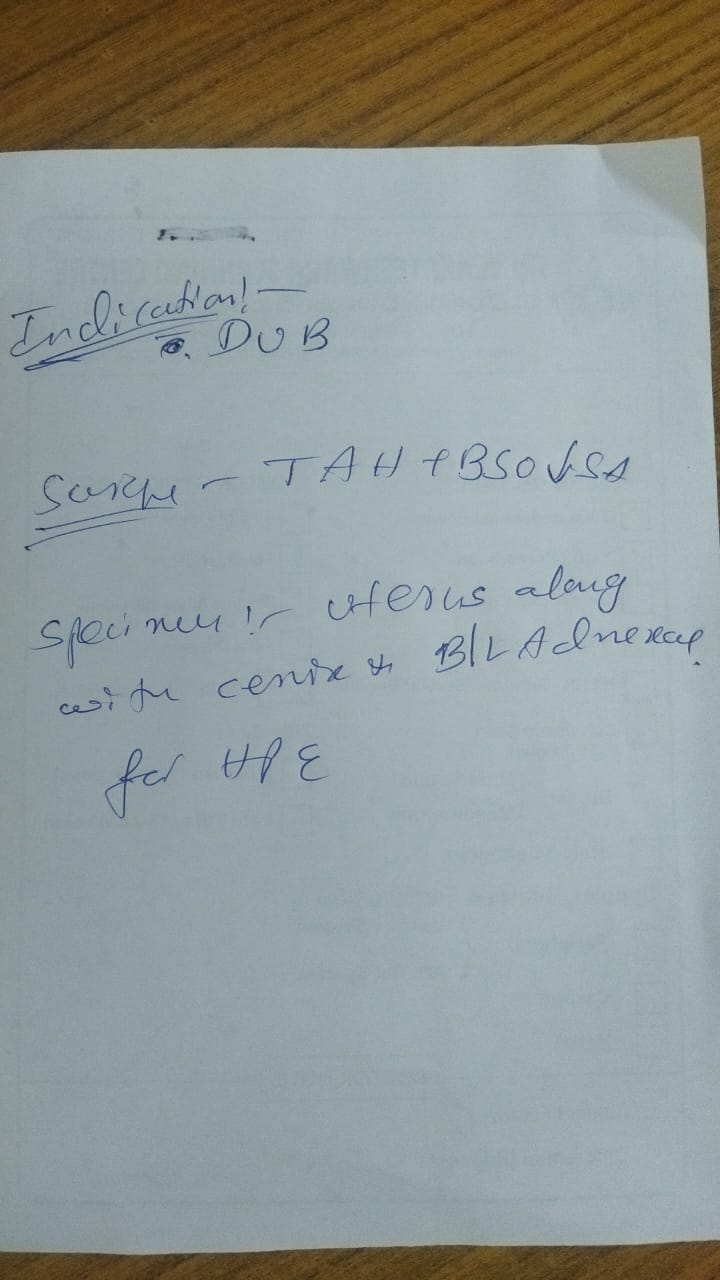 Indication:-
DUB
Surgery - TAH + BSO ↓ SA
Specimen :- Uterus along
with cervix & B/L Adnexae
for HPE